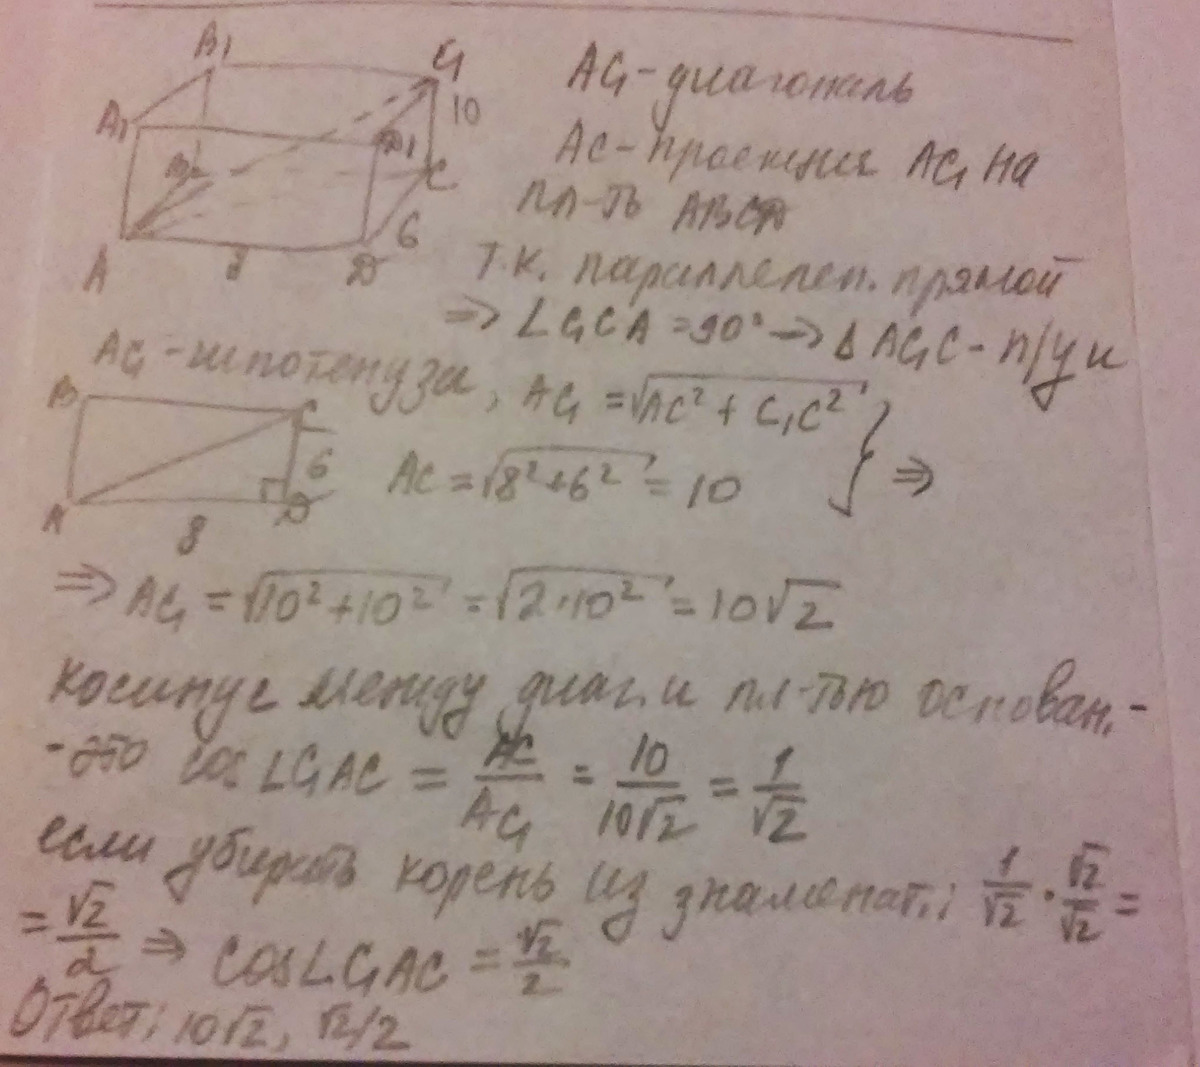 B₁
C₁
10
A₁
D₁
B
C
6
A
8
D
AC₁ - диагональ
AC - проекция AC₁ на
пл-ть ABCD
т.к. параллелеп. прямой
⇒ ∠C₁CA = 90° → Δ AC₁C - п/у и
AC₁ - гипотенуза, AC₁ = √(AC² + C₁C²)
AC = √(8² + 6²) = 10 } ⇒
B
C
6
A
8
D
⇒ AC₁ = √(10² + 10²) = √(2·10²) = 10√2
косинус между диаг. и пл-тью основан. -
- это cos ∠C₁AC = AC/AC₁ = 10/10√2 = 1/√2
если убирать корень из знаменат.: 1/√2 · √2/√2 =
= √2/2 ⇒ cos ∠C₁AC = √2/2
Ответ: 10√2, √2/2